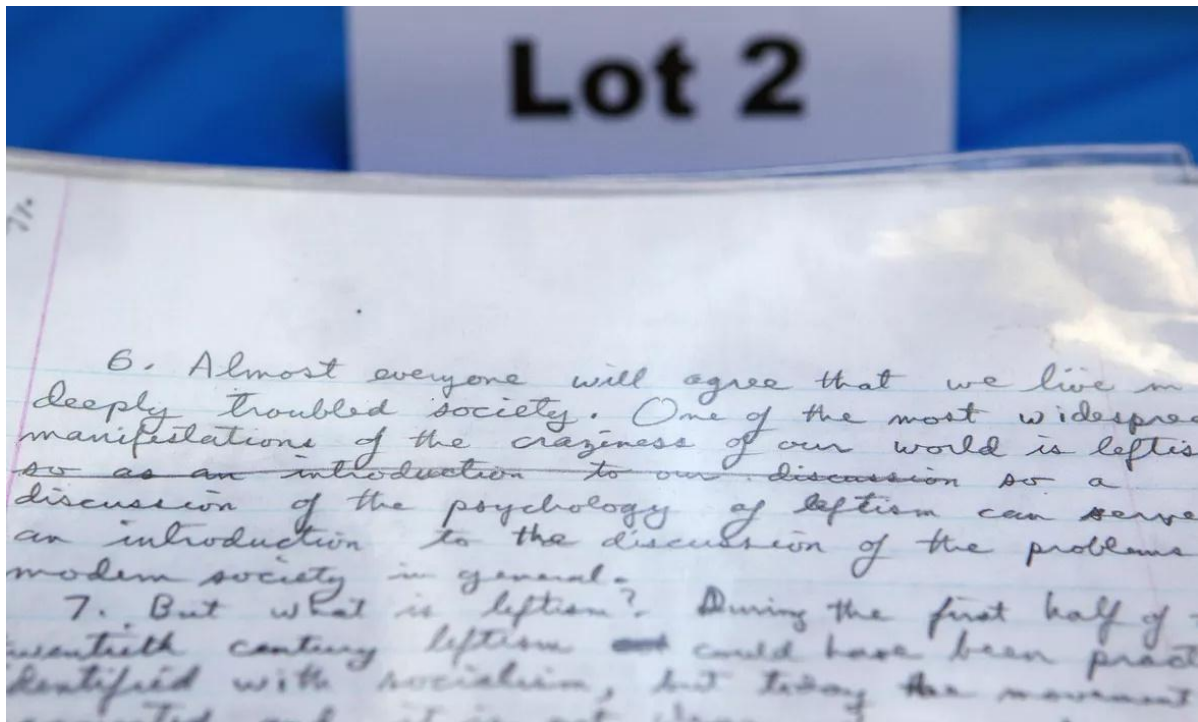 Lot 2
6. Almost everyone will agree that we live in
deeply troubled society. One of the most widesprea
manifestations of the craziness of our world is leftis
so as an introduction to our discussion so a
discussion of the psychology of leftism can serve
an introduction to the discussion of the problems
modern society in general.
7. But what is leftism? During the first half of
wentieth century leftism could have been pract
dentified with socialism, but today the movement